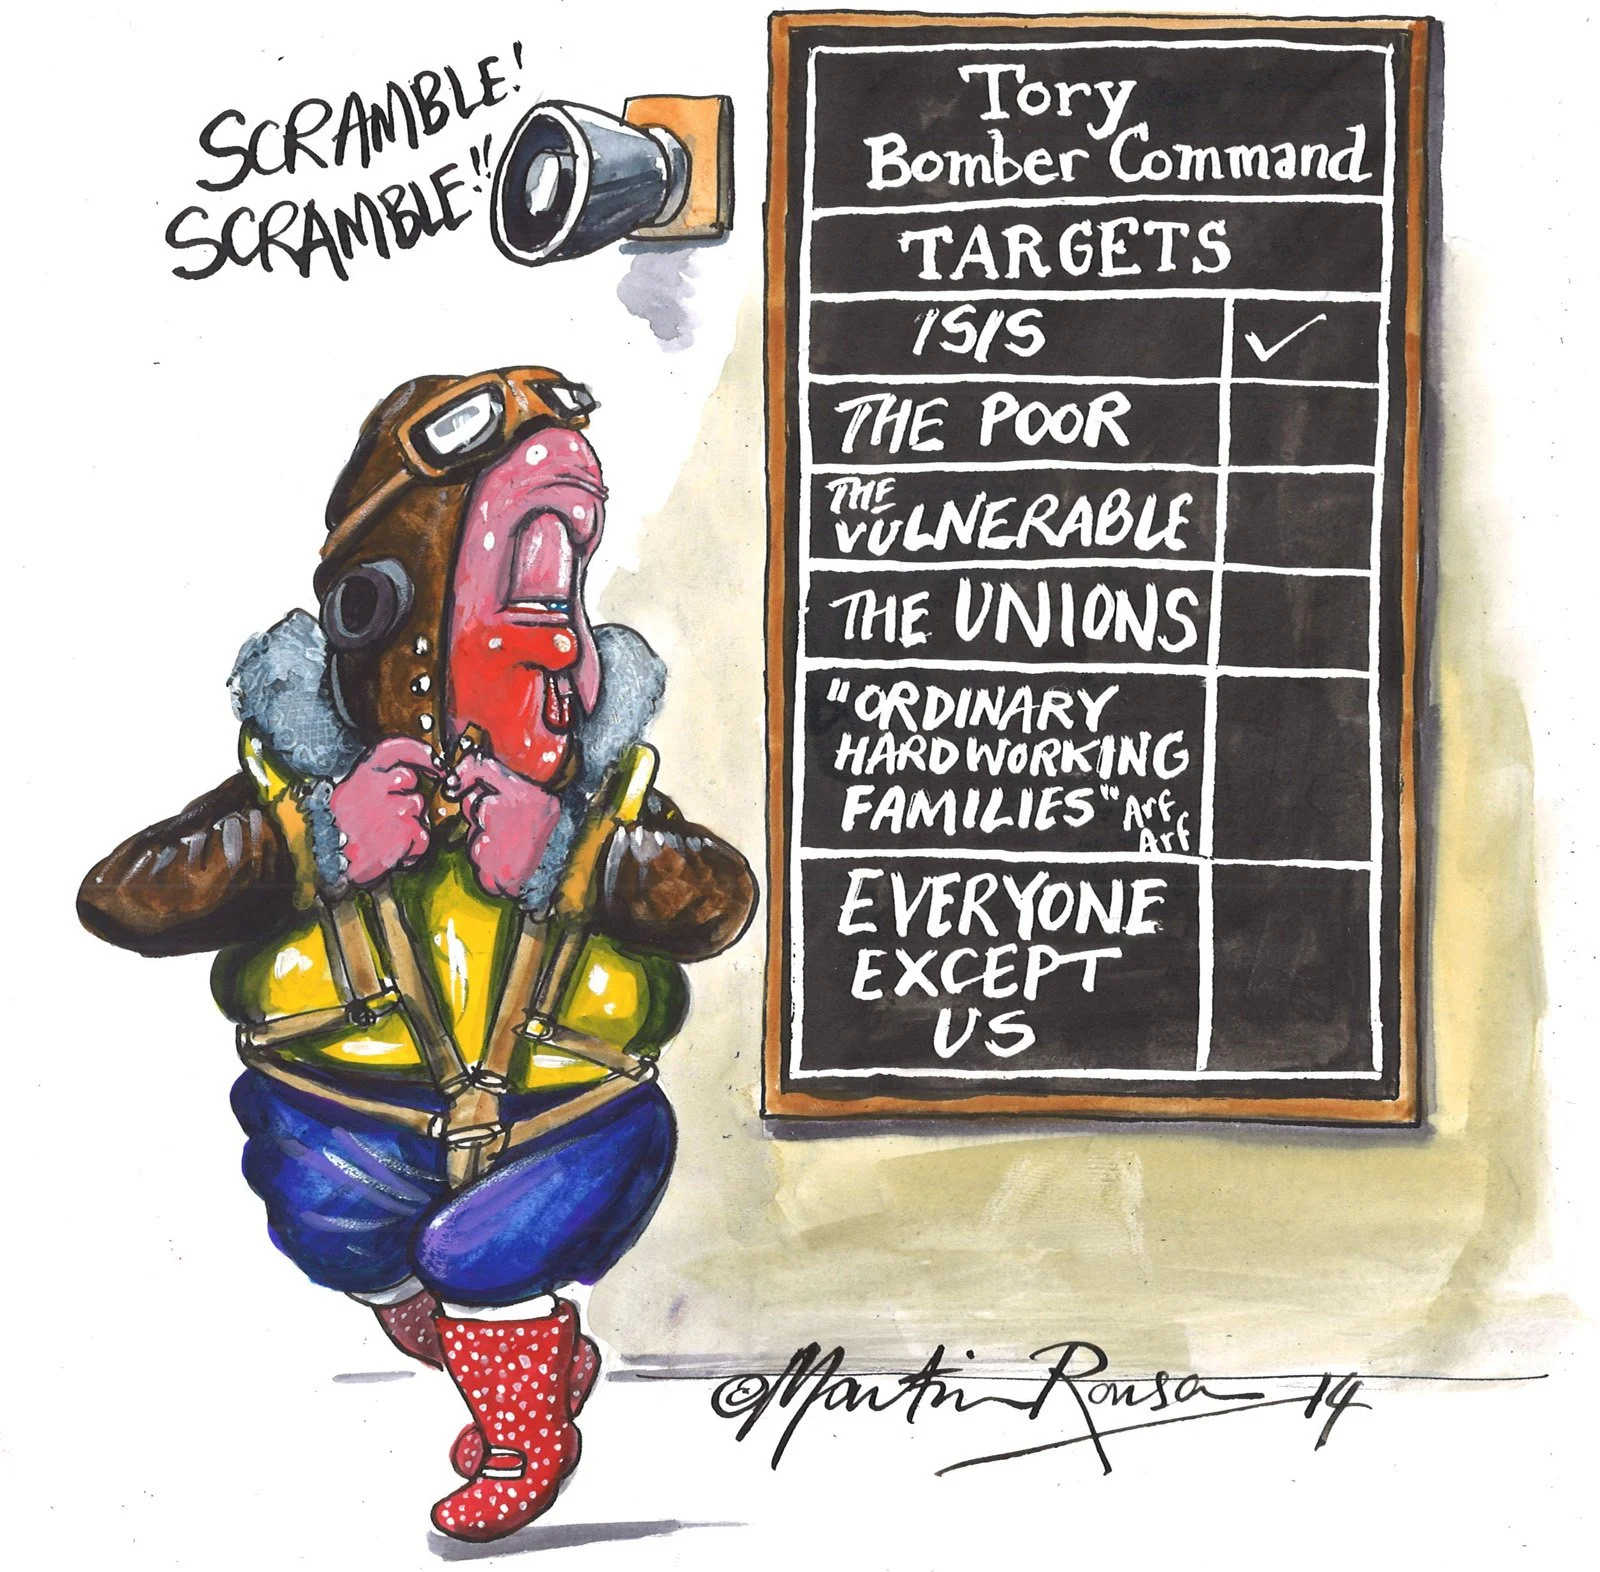 SCRAMBLE!
SCRAMBLE!!
Tory
Bomber Command
TARGETS
ISIS ✓
THE POOR
THE
VULNERABLE
THE UNIONS
"ORDINARY
HARDWORKING
FAMILIES" Arf
Arf
EVERYONE
EXCEPT
US
©Martin Rowson 14